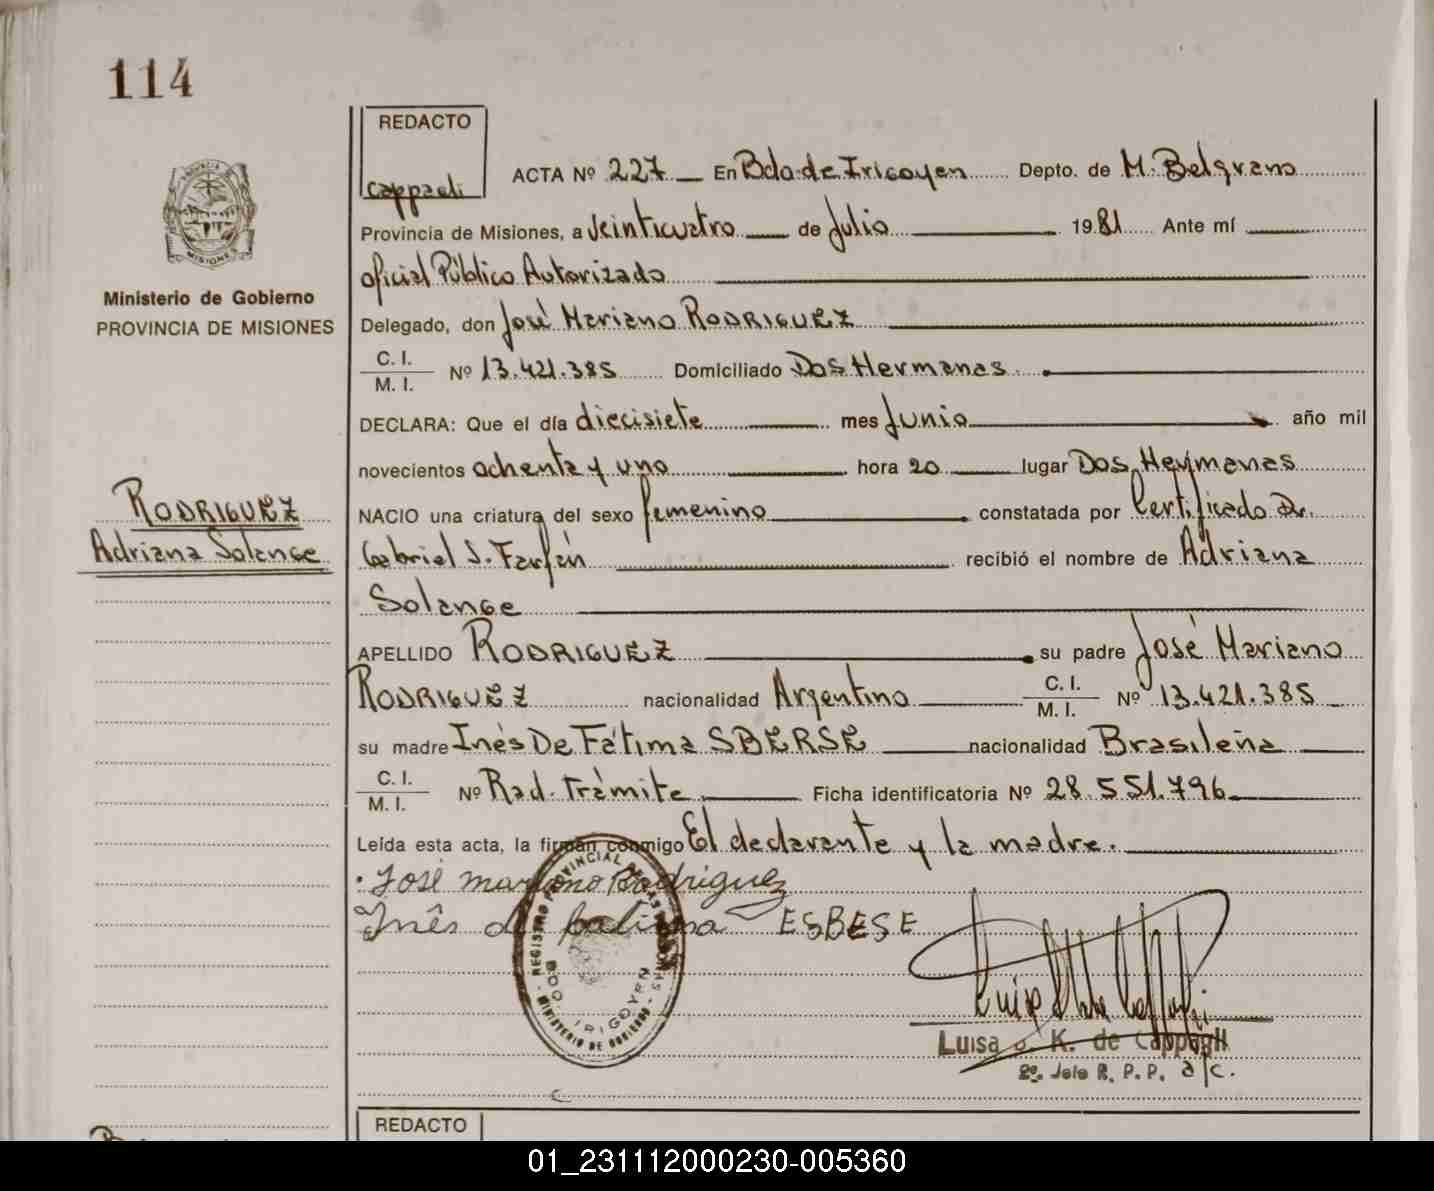 114
REDACTO
Cappaeli
ACTA Nº 227 En Bdo de Iricoyen Depto. de M. Belgrano
Provincia de Misiones, a Veinticuatro de Julio 1981 Ante mí
oficial Público Autorizado
Delegado, don José Mariano RODRIGUEZ
C. I.
M. I. Nº 13.421.385 Domiciliado Dos Hermanas
DECLARA: Que el día diecisiete mes Junio año mil
novecientos ochenta y uno hora 20 lugar Dos Hermanas
NACIO una criatura del sexo femenino constatada por Certificado Dr.
Gabriel S. Farfán recibió el nombre de Adriana
Solange
APELLIDO RODRIGUEZ su padre José Mariano
RODRIGUEZ nacionalidad Argentino C. I.
M. I. Nº 13.421.385
su madre Inés De Fátima SBERSE nacionalidad Brasileña
C. I.
M. I. Nº Rad. Trámite Ficha identificatoria Nº 28.551.796
Leída esta acta, la firman conmigo El declarante y la madre.
José mariano Rodriguez
Inês de fatima ESBESE
REGISTRO PROVINCIAL DE LAS PERSONAS
BDO IRIGOYEN
MINISTERIO DE GOBIERNO
Luisa K. de Cappaeli
2º. Jefe R. P. P. a/c.
PROVINCIA
MISIONES
Ministerio de Gobierno
PROVINCIA DE MISIONES
RODRIGUEZ
Adriana Solange
REDACTO
01_231112000230-005360